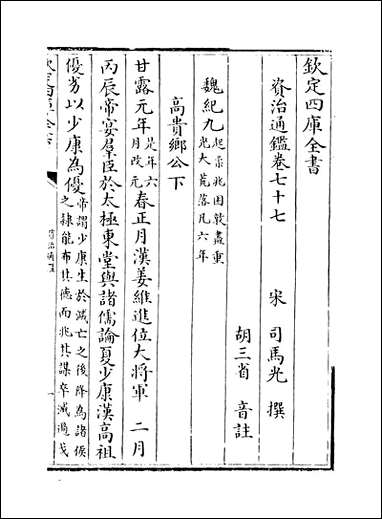 欽定四庫全書
資治通鑑卷七十七
宋 司馬光 撰
胡三省 音註
魏紀九 起柔兆困敦盡重
光大荒落凡六年
高貴鄉公下
甘露元年 是年六
月改元 春正月漢姜維進位大將軍 二月
丙辰帝宴羣臣於太極東堂與諸儒論夏少康漢高祖
優劣以少康為優 帝謂少康生於滅亡之後降為諸侯
之隸能布其德而兆其謀卒滅過戈